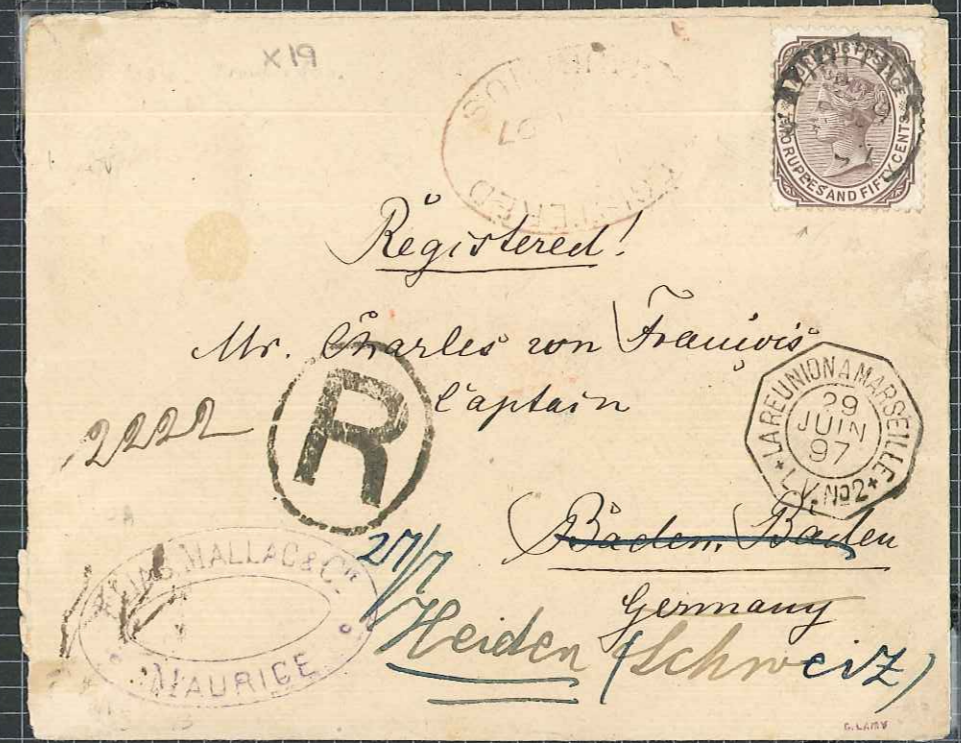 X 19
REGISTERED
97
MAURITIUS POSTAGE
TWO RUPEES AND FIFTY CENTS
Registered!
Mr. Charles von François
Captain
2222
R
LA REUNION A MARSEILLE
29
JUIN
97
L.V. No 2
Baden Baden
Germany
27/7
Heiden (Schweiz)
MALLAC & Cie
MAURICE
G. LAMY